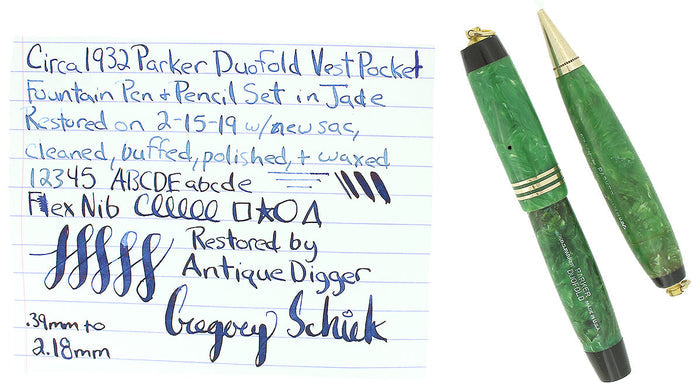 Circa 1932 Parker Duofold Vest Pocket
Fountain Pen & Pencil Set in Jade
Restored on 2-15-19 w/new sac,
cleaned, buffed, polished, + waxed
12345 ABCDE abcde
Flex Nib
Restored by
Antique Digger
Gregory Schiek
.39mm to
2.18mm
PARKER
DUOFOLD